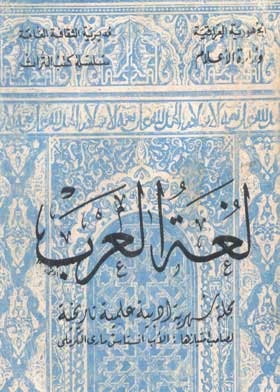 الجمهورية العراقية
وزارة الإعلام
مديرية الثقافة العامة
سلسلة كتب التراث
لغة العرب
مجلة شهرية أدبية علمية تاريخية
لصاحب امتيازها: الأب انستاس ماري الكرملي